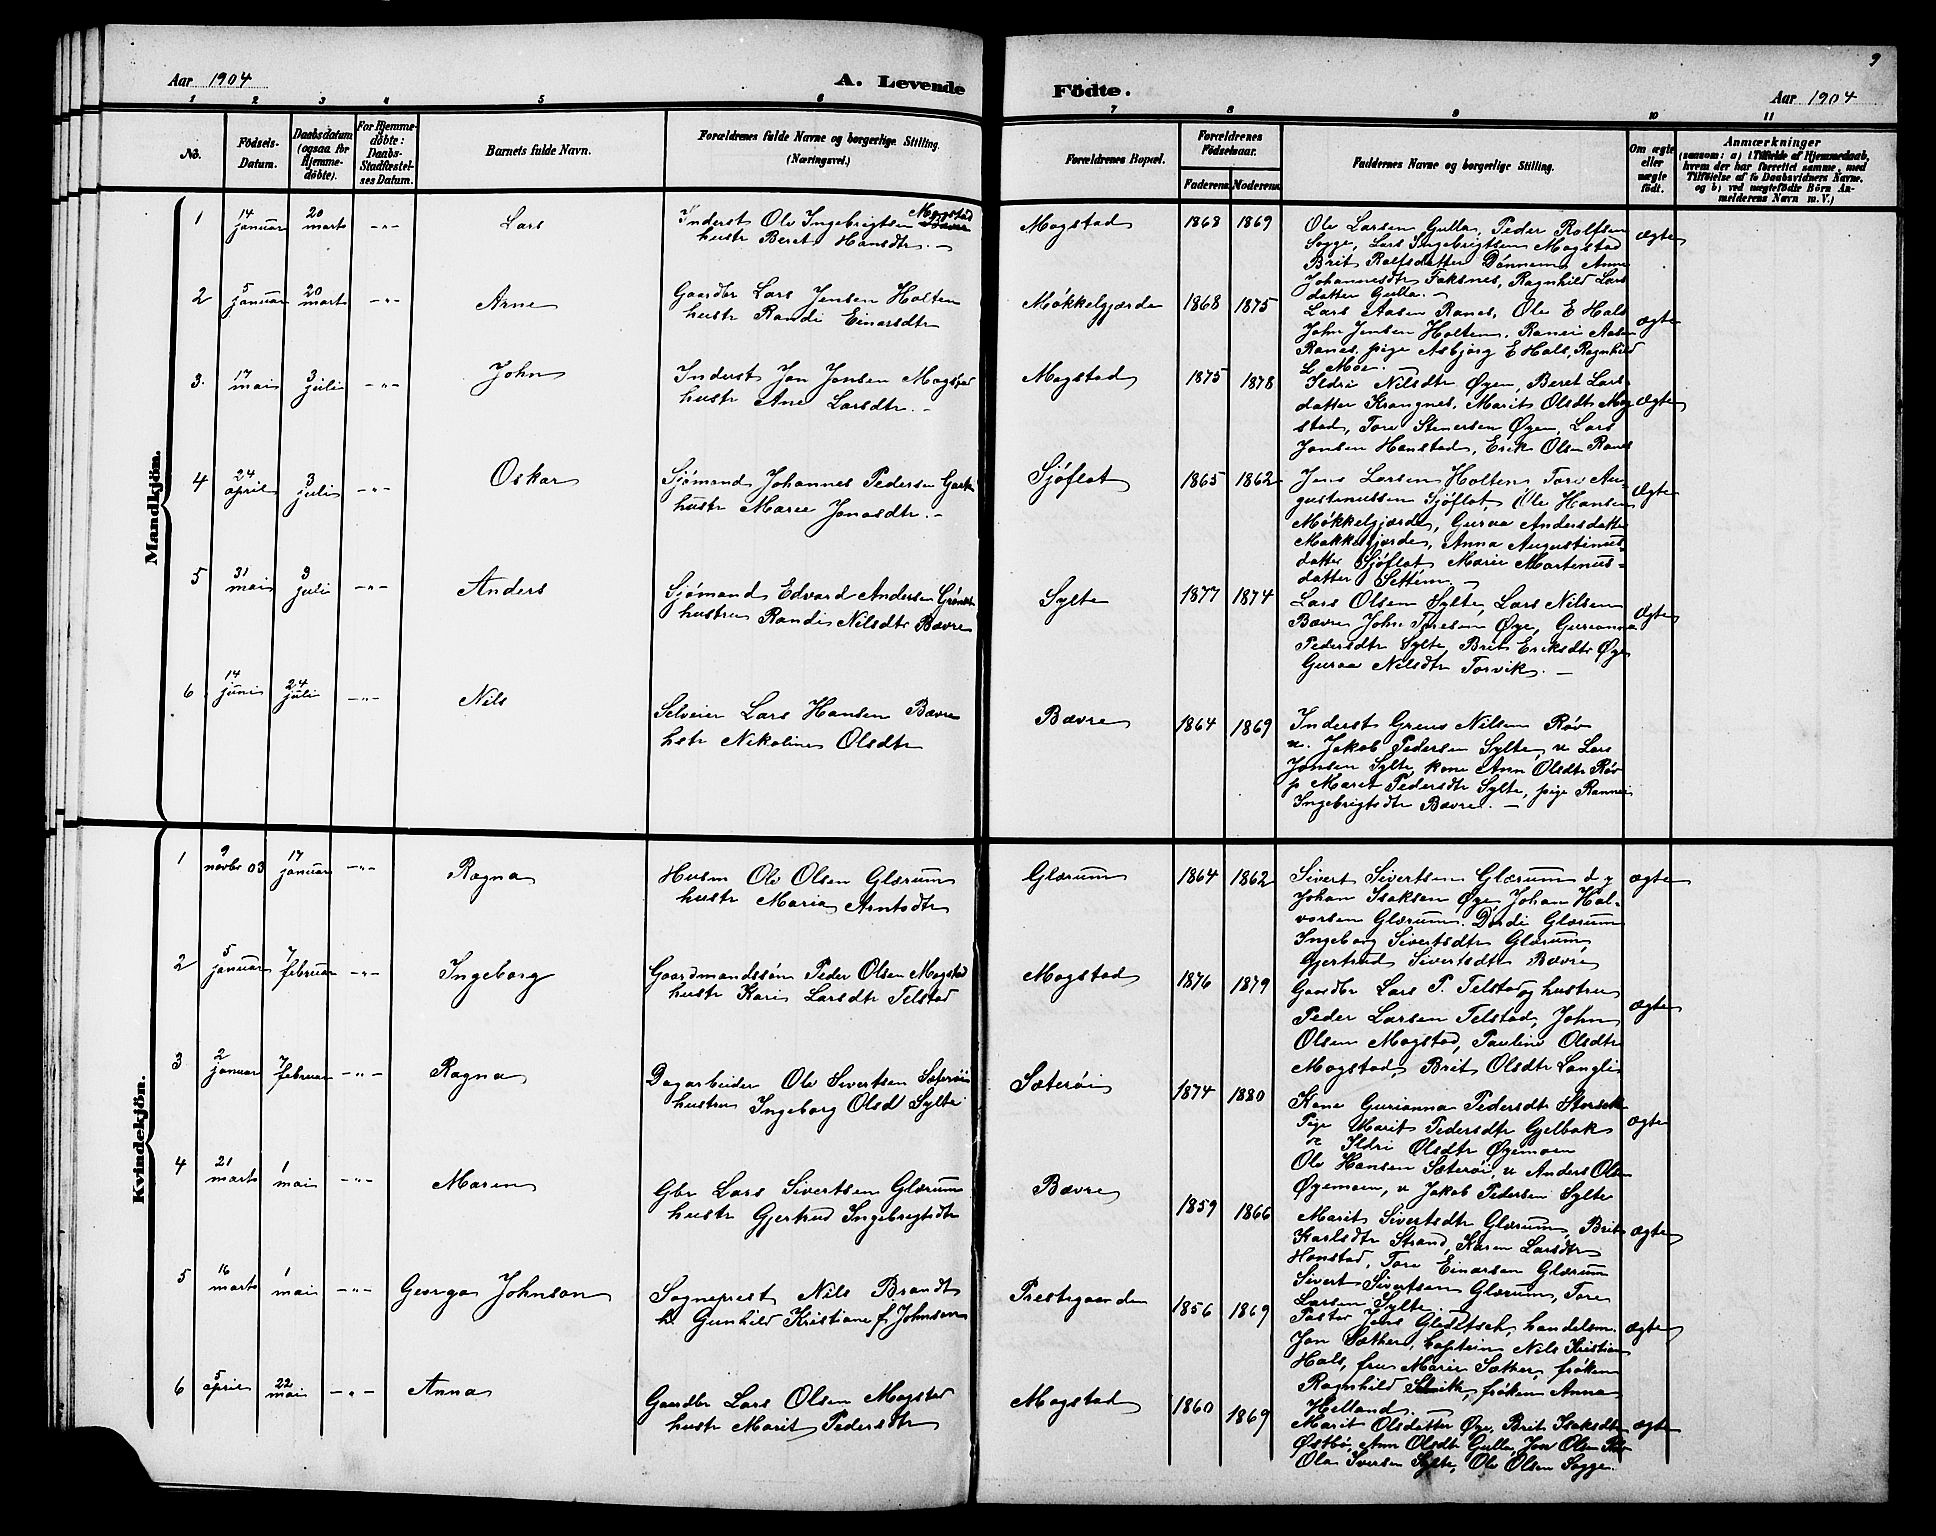 Aar 1904
A. Levende Födte.
Aar 1904
9
1 2 3 4 5 6 7 8 9 10 11
No.
Födsels-Datum.
Daabsdatum (ogsaa for Hjemme-döbte).
For Hjemme-döbte: Daabs-Stadfæstel-ses Datum.
Barnets fulde Navn.
Forældrenes fulde Navne og borgerlige Stilling. (Næringsvei.)
Forældrenes Bopæl.
Forældrenes Födselsaar.
Faderens Moderens
Faddernes Navne og borgerlige Stilling.
Om ægte eller uægte födt.
Anmærkninger
(saasom: a) i Tilfælde af Hjemmedaab,
hvem der har forrettet samme, med
Tilföielse af to Daabsvidners Navne,
og b) ved uægtefödte Börn An-
melderens Navn m. V.)
Mandkjön.
1 14 januar 20 marts -"- Lars
Inderst Ole Ingebrigtsen Mogstad
hustr Beret Hansdtr. -
Mogstad 1868 1869
Ole Larsen Gulla, Peder Rolfsen
Sogge, Lars Ingebrigtsen Mogstad
Brit Rolfsdatter Dönnem, Anne
Johannesdtr Faksnes, Ragnhild Lars
datter Gulla. -
ægte
2 5 januar 20 marts -"- Arne
Gaardbr Lars Jensen Holten
hustr Randi Einarsdtr
Møkkelgjærde 1868 1875
Lars Aasen Ranes, Ole E Hals
John Jensen Holten, Ranei Aasen
Ranes, pige Asbjørg E Hals, Ragnhild
L Moe. -
ægte
3. 17 mai 3 juli -"- John
Inderst Jon Jonsen Mogstad
hustr Ane Larsdtr. -
Mogstad 1875 1878
Ildri Nilsdtr Øyen, Beret Lars-
datter Krangnes, Marit Olsdtr Mog
stad, Tore Stenersen Øyen, Lars
Jonsen Hanstad, Erik Olsen Ranes
ægte
4 24 april 3 juli -"- Oskar
Sjømand Johannes Pedersen
hustr Maree Jonasdtr. -
Sjøflot 1865 1862
Jens Larsen Holten Tore Au-
gustinussen Sjøflot, Ole Hansen
Møkkelgjærde, Guraa Andersdatter
Møkkelgjærde, Anna Augustinus-
datter Sjøflot, Marie Martinus-
datter Settem. -
Ægte
5 31 mai 3 juli -"- Anders
Sjømand Edvard Andersen
hustru Randi Nilsdtr Bævre
Sylte 1877 1874
Lars Olsen Sylte, Lars Nilsen
Bævre John Toresen Øye, Gurianna
Pedersdtr Sylte, Brit Eriksdtr Øye
Guraa Nilsdtr Torvik. -
Ægte
6 14 juni 24 juli -"- Nils
Selveier Lars Hansen Bævre
hstr Nikoline Olsdtr
Bævre 1864 1869
Inderst Greus Nilsen Røv
u. Jakob Pedersen Sylte, u Lars
Jonsen Sylte, kone Ann Olsdtr Røv
p Maret Pedersdtr Sylte, pige Rannei
Ingebrigtsdtr Bævre. -
Kvindekjön.
1 9 novbr 03 17 januar -"- Ragna
Husm Ole Olsen Glærum
hustr Maria Arntsdtr
Glærum 1864 1862
Sivert Sivertsen Glærum d y
Johan Isaksen Øye, Johan Hal-
vorsen Glærum. Dordi Glærum
Ingeborg Sivertsdtr Glærum,
Gjertrud Sivertsdtr Bævre
ægte
2 5 januar 7 februar -"- Ingeborg
Gaardmandssøn Peder Olsen Mogstad
hustr Kari Larsdtr Telstad
Mogstad 1876 1879
Gaardbr Lars P. Telstad og hustru
Peder Larsen Telstad, John
Olsen Mogstad, Pauline Olsdtr
Mogstad, Brit Olsdtr Langli
ægte
3 2 januar 7 februar -"- Ragna
Dagarbeider Ole Sivertsen Sæterøi
hustru Ingeborg Olsd Sylte
Sæterøi 1874 1880
Kone Gurianna Pedersdtr
Pige Marit Pedersdtr Gjelbak
u Ildri Olsdtr Øyemoen
Ole Hansen Sæterøi, u Anders Olsen
Øyemoen, u Jakob Pedersen Sylte
ægte
4 21 marts 1 mai -"- Maren
Gbr Lars Sivertsen Glærum
hustr Gjertrud Ingebrigtsdtr
Bævre 1859 1866
Marit Sivertsdtr Glærum, Brit
Karlsdtr Strand, Karen Larsdtr
Honstad, Tore Einarsen Glærum
Sivert Sivertsen Glærum, Tore
Larsen Sylte.
ægte
5 16 marts 1 mai -"- Georga Johnson
Sogneprest Nils Brandt
h. Gunhild Kristiane f Johnson
Prestegaarden 1856 1869
Pastor Jens Gleditsch, handelsm.
Jon Sæther, kaptein Nils Kristian
Hals, fru Marie Sæther, frøken
Ragnhild, frøken Anna
Helland. -
ægte
6 5 april 22 mai -"- Anna
Gaardbr Lars Olsen Mogstad
hustr Marit Pedersdtr
Mogstad 1860 1869
Marit Olsdatter Øye, Brit Isaksdtr
Østbø, Ann Olsdtr Gulla, Jon Olsen
Ola Iversen Sylte, Ole Olsen Sogge.
ægte